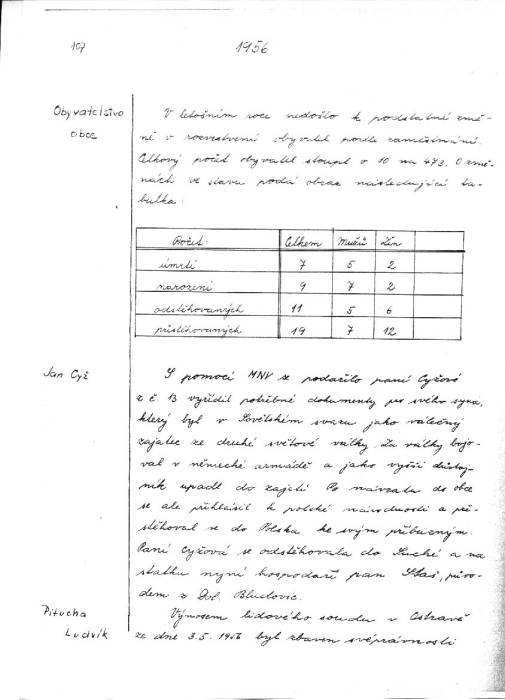 107
1956
Obyvatelstvo
obce
V letošním roce nedošlo k podstatné změ-
ně v rozvrstvení obyvatel podle zaměstnání.
Celkový počet obyvatel stoupl o 10 na 473. O změ-
nách ve stavu podá obraz následující ta-
bulka:
Počet: Celkem Mužů Žen
úmrtí 7 5 2
narození 9 7 2
odstěhovaných 11 5 6
přistěhovaných 19 7 12
Jan Cyž
S pomocí MNV se podařilo paní Cyžové
z č 13 vyřídit potřebné dokumenty pro svého syna,
který byl v Sovětském svazu jako válečný
zajatec ze druhé světové války. Za války bojo-
val v německé armádě a jako vyšší důstoj-
ník upadl do zajetí. Po návratu do obce
se ale přihlásil k polské národnosti a pře-
stěhoval se do Polska ke svým příbuzným.
Paní Cyžová se odstěhovala do Suché a na
statku nyní hospodaří pan půvo-
dem z Dol. Bludovic.
Pitucha
Ludvík
Výnosem lidového soudu v Ostravě
ze dne 3.5. 1956 byl zbaven svéprávnosti